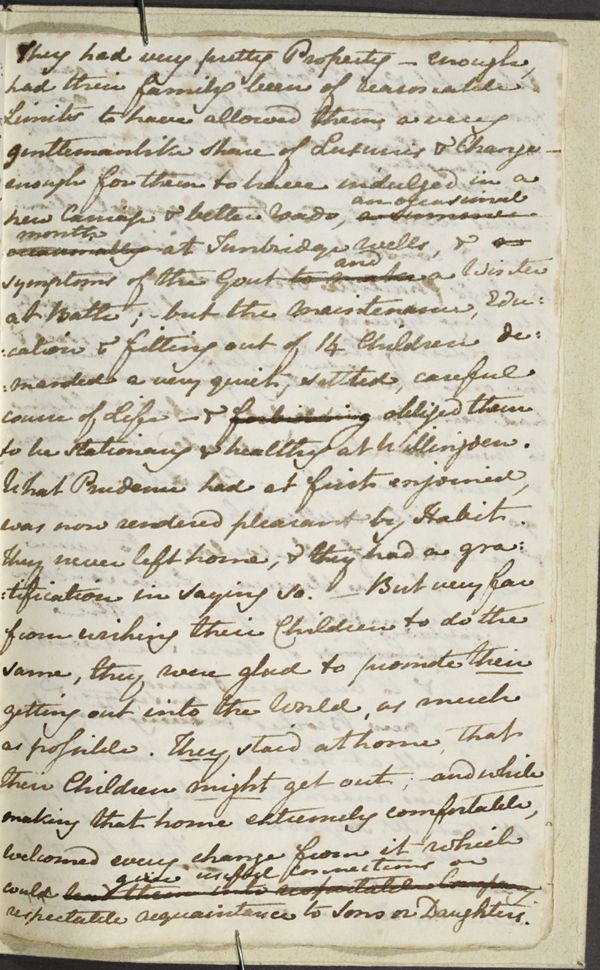 They had very pretty Property – enough,
had their family been of reasonable
Limits to have allowed them a very
gentlemanlike share of Luxuries & Change –
enough for them to have indulged in a
new Carriage & better roads, an occasional
month at Tunbridge Wells, &
symptoms of the Gout and a Winter
at Bath; – but the maintenance, Edu:
:cation & fitting out of 14 Children de:
:manded a very quiet, settled, careful
course of Life – & forbidding obliged them
to be stationary & healthy at Willingden.
What Prudence had at first enjoined,
was now rendered pleasant by Habit.
They never left home, & they had a gra:
:tification in saying so. – But very far
from wishing their Children to do the
same, they were glad to promote their
getting out into the World, as much
as possible. They staid at home, that
their Children might get out; and while
making that home extremely comfortable,
welcomed every change from it which
could give useful connections or
respectable acquaintance to Sons or Daughters.